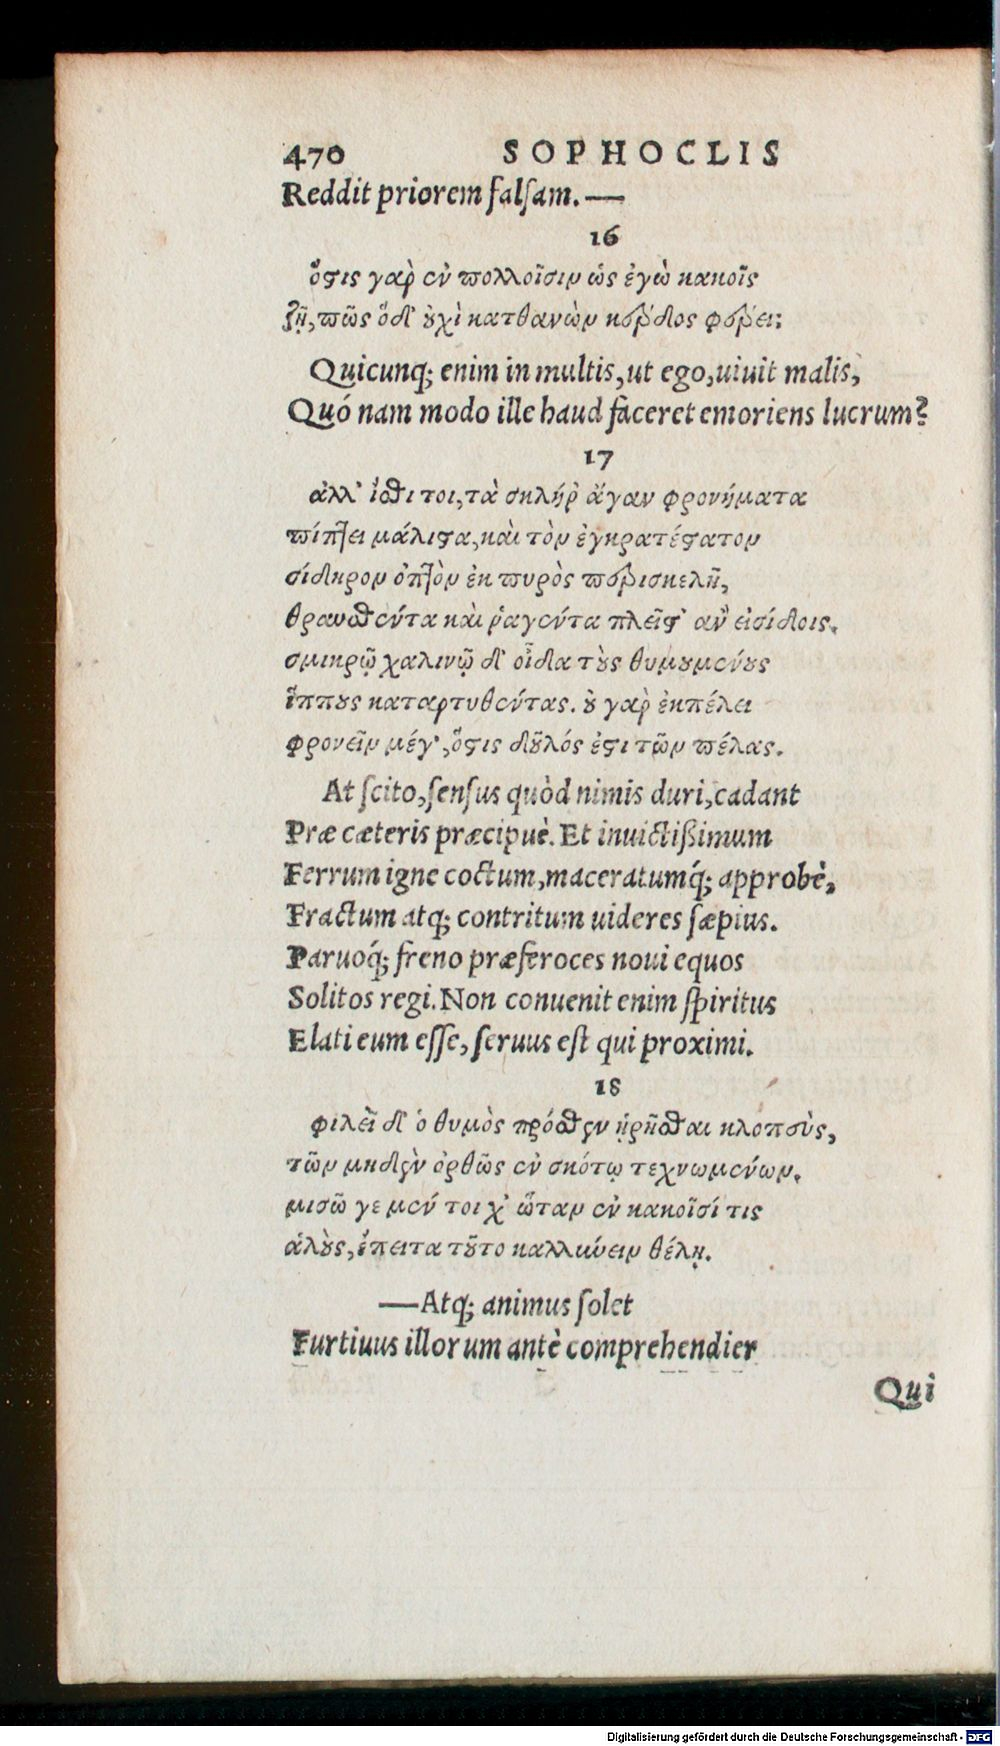 470 SOPHOCLIS
Reddit priorem falſam.—
16
ὅϛις γαρ̀ ἐν πολλοῖσιν ὡς ἐγὼ κακοῖς
ζῇ, πῶς ὅδ᾽ ȣ̓χὶ κατθανὼν κέρδος φέρει;
Quicunq; enim in multis, ut ego, uiuit malis,
Quó nam modo ille haud faceret emoriens lucrum?
17
ἀλλ᾽ ἴσθι τοι, τὰ σκλήρ᾽ ἄγαν φρονήματα
πίπτει μάλιϛα, καὶ τὸν ἐγκρατέϛατον
σίδηρον ὀπτὸν ἐκ πυρὸς περισκελῆ,
θραυσθέντα καὶ ῥαγέντα πλεῖϛ᾽ ἂν εἰσίδοις.
σμικρῷ χαλινῷ δ᾽ οἶδα τȣ̀ς θυμȣμένȣς
ἵππȣς καταρτυθέντας. ȣ̓ γαρ̀ ἐκπέλει
φρονεῖν μέγ᾽, ὅϛις δȣ̃λός ἐϛι τῶν πέλας.
At ſcito, ſenſus quòd nimis duri, cadant
Præ cæteris præcipuè. Et inuictißimum
Ferrum igne coctum, maceratumq́; approbè,
Fractum atq; contritum uideres ſæpius.
Paruoq́; freno præferoces noui equos
Solitos regi. Non conuenit enim ſpiritus
Elati eum eſſe, ſeruus eſt qui proximi.
18
φιλεῖ δ᾽ ὁ θυμὸς πρόσθεν ᾑρῆσθαι κλοπεὺς,
τῶν μηδὲν ὀρθῶς ἐν σκότῳ τεχνωμένων.
μισῶ γε μέν τοι χ᾽ ὥταν ἐν κακοῖσί τις
ἁλȣ̀ς, ἔπειτα τȣ̃το καλλιώειν θέλῃ.
—Atq; animus ſolet
Furtiuus illorum antè comprehendier
Qui
Digitalisierung gefördert durch die Deutsche Forschungsgemeinschaft - DFG